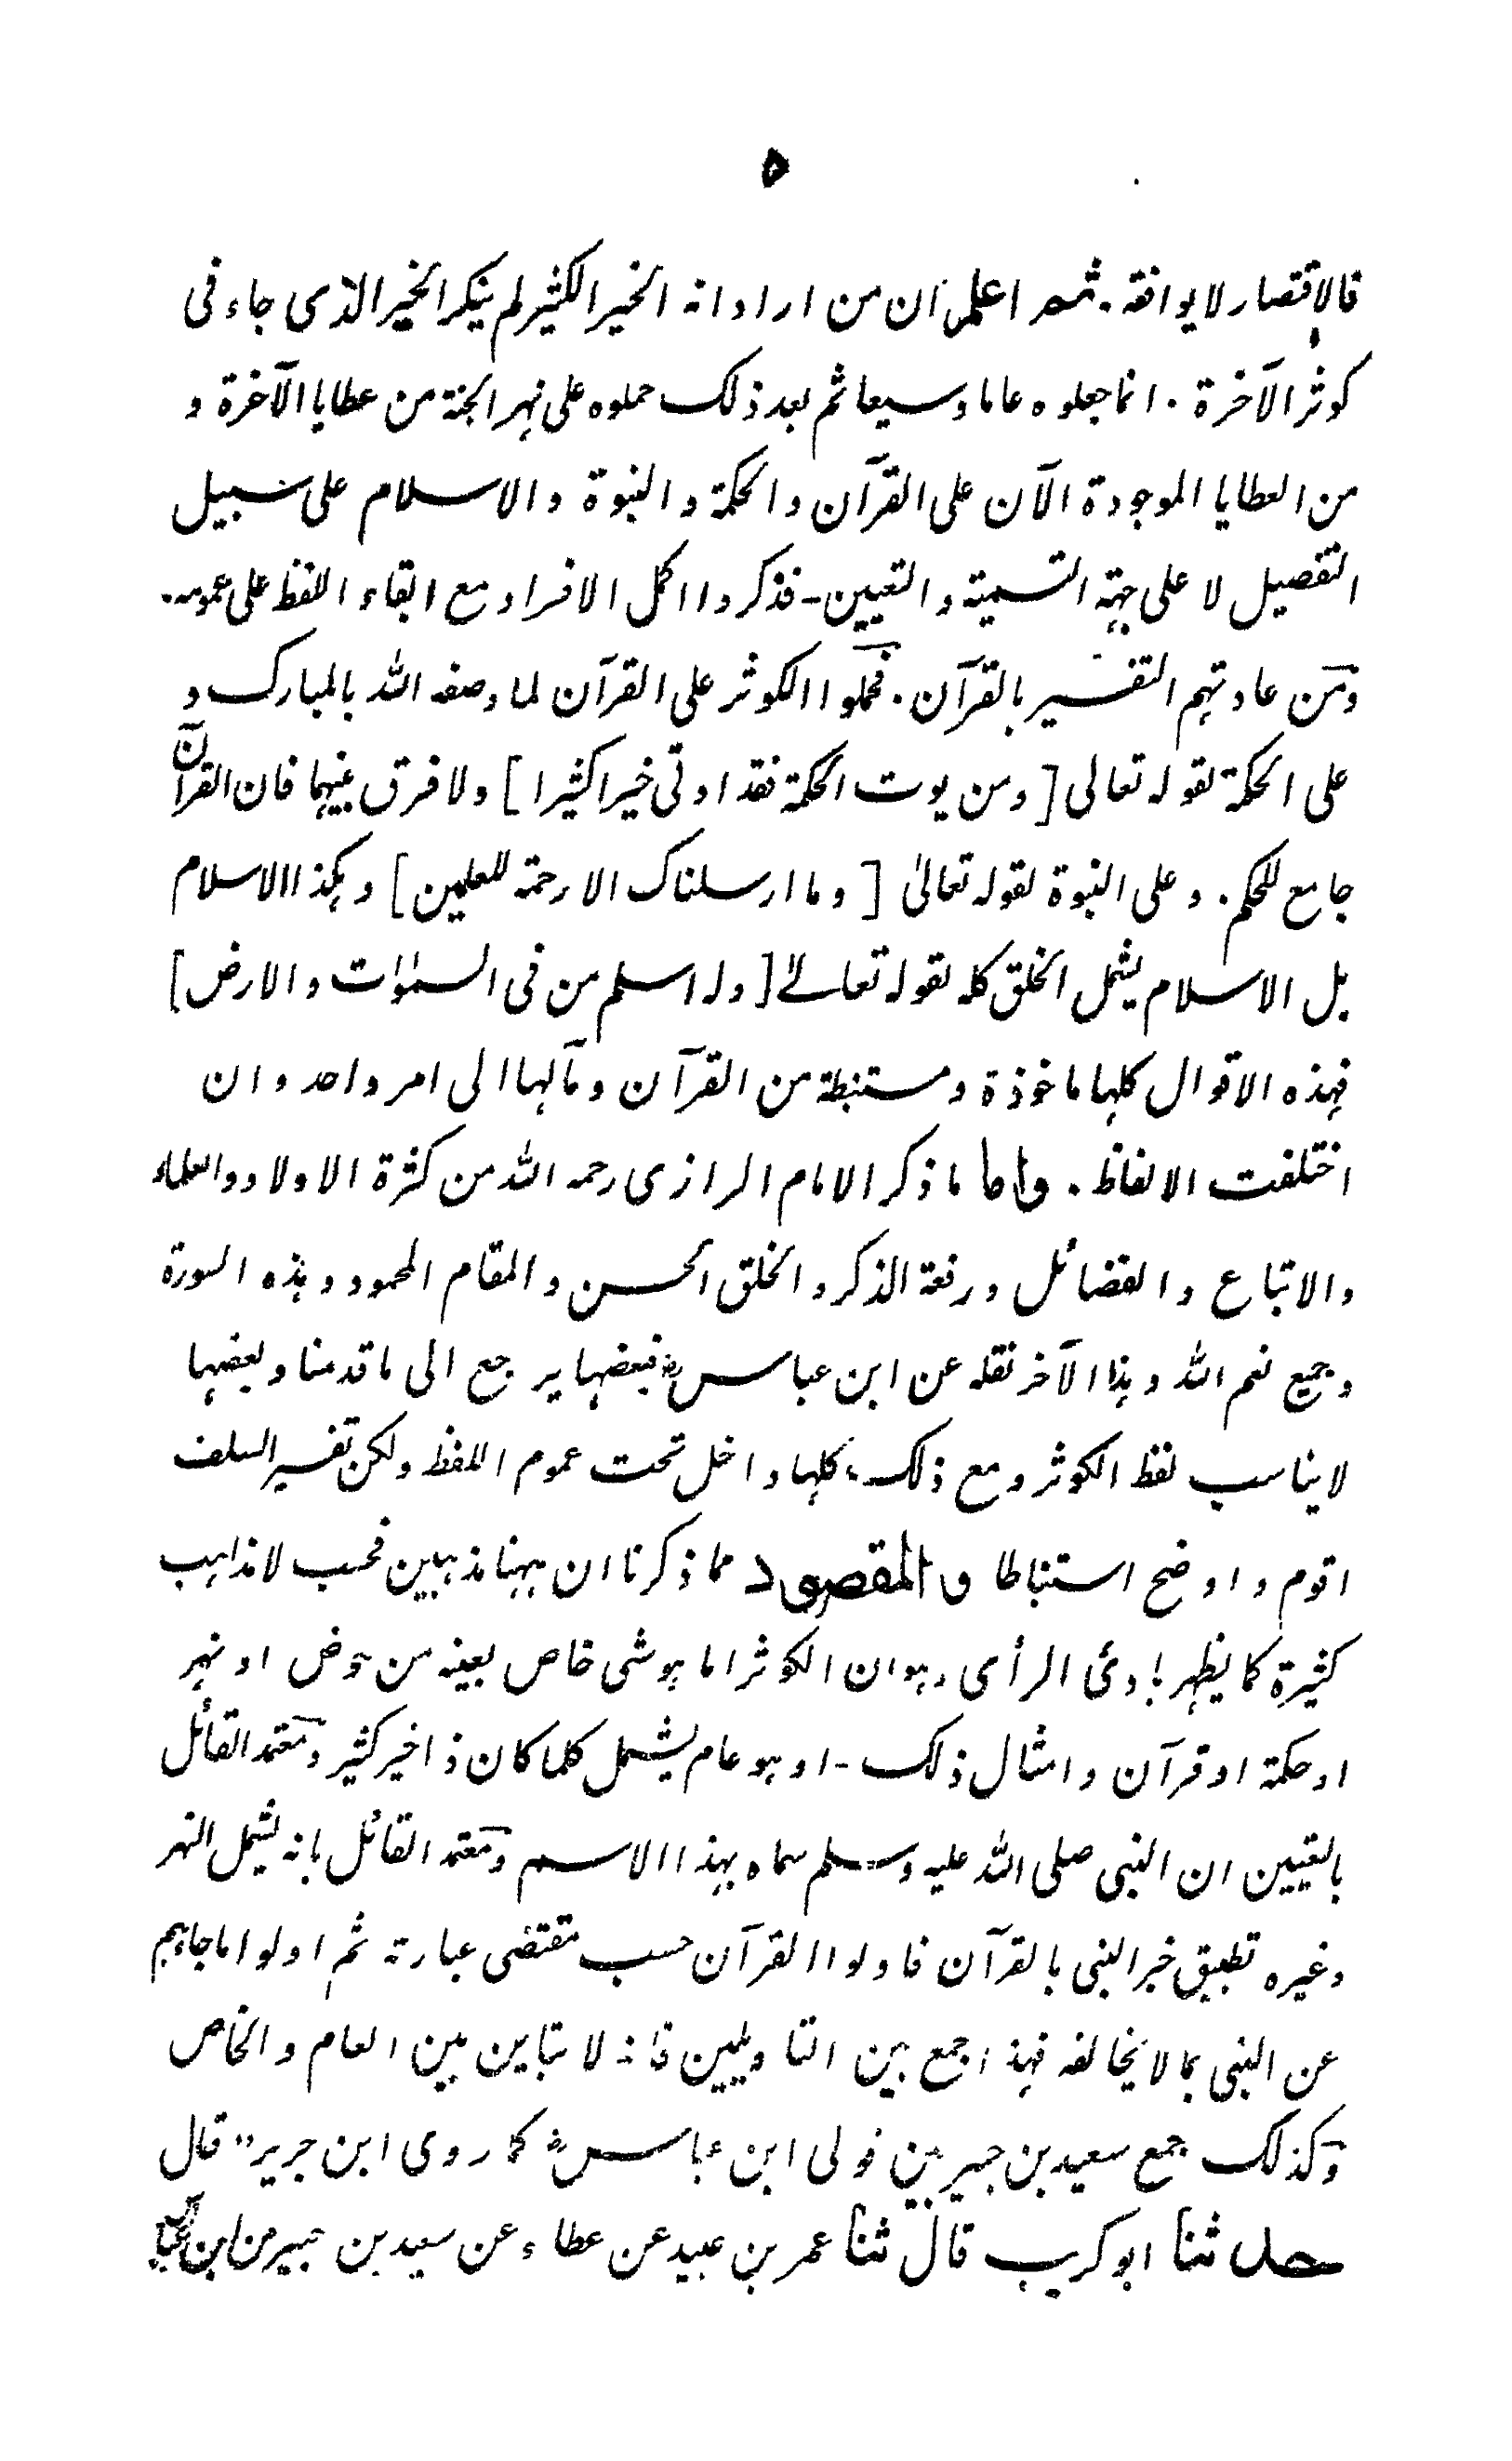 ۵
فالاقتصار لا يوافقه . ثم اعلم ان من اراد انه الخير الكثير لم ينكر الخير الذى جاء فى
كوثر الآخرة . انما جعلوه عاما وسيعا ثم بعد ذلك حملوه على نهر الجنة من عطايا الآخرة و
من العطايا الموجودة الآن على القرآن والحكمة والنبوة والاسلام على سبيل
التفصيل لا على جهة التسمية والتعيين - فذكروا اكمل الافراد مع ابقاء اللفظ على عمومه .
ومن عادتهم التفسير بالقرآن . فحملوا الكوثر على القرآن لما وصفه الله بالمبارك و
على الحكمة لقوله تعالى [ ومن يوت الحكمة فقد اوتى خيرا كثيرا ] ولا فرق بينهما فان القرآن
جامع للحكم . وعلى النبوة لقوله تعالىٰ [ وما ارسلناك الا رحمة للعلمين ] وهكذا الاسلام
بل الاسلام يشمل الخلق كله لقوله تعالىٰ [ وله اسلم من فى السمٰوٰت والارض ]
فهذه الاقوال كلها ماخوذة ومستنبطة من القرآن ومآلها الى امر واحد وان
اختلفت الالفاظ . واما ما ذكر الامام الرازى رحمه الله من كثرة الاولاد والعلماء
والاتباع والفضائل ورفعة الذكر والخلق الحسن والمقام المحمود وهذه السورة
وجميع نعم الله وهذا الآخر نقله عن ابن عباسؓ فبعضها يرجع الى ما قدمنا وبعضها
لا يناسب لفظ الكوثر ومع ذلك، كلها داخل تحت عموم اللفظ ولكن تفسير السلف
اقوم واوضح استنباطا والمقصود مما ذكرنا ان ههنا مذهبين فحسب لا مذاهب
كثيرة كما يظهر بادئ الرأى وهو ان الكوثر اما هو شى خاص بعينه من حوض او نهر
او حكمة او قرآن وامثال ذلك - او هو عام يشمل كلما كان ذا خير كثير ومعتمد القائل
بالتعيين ان النبى صلى الله عليه وسلم سماه بهذا الاسم ومعتمد القائل بانه يشمل النهر
وغيره تطبيق خبر النبى بالقرآن فاولوا القرآن حسب مقتضى عبارته ثم اولوا ما جاءهم
عن النبى بما لا يخالفه فهذا جمع بين التاويلين فانه لا تباين بين العام والخاص
وكذلك جمع سعيد بن جبير بين قولى ابن عباسؓ كما روى ابن جرير " قال
حدثنا ابو كريب قال ثنا عمر بن عبيد عن عطاء عن سعيد بن جبير عن ابن عباس